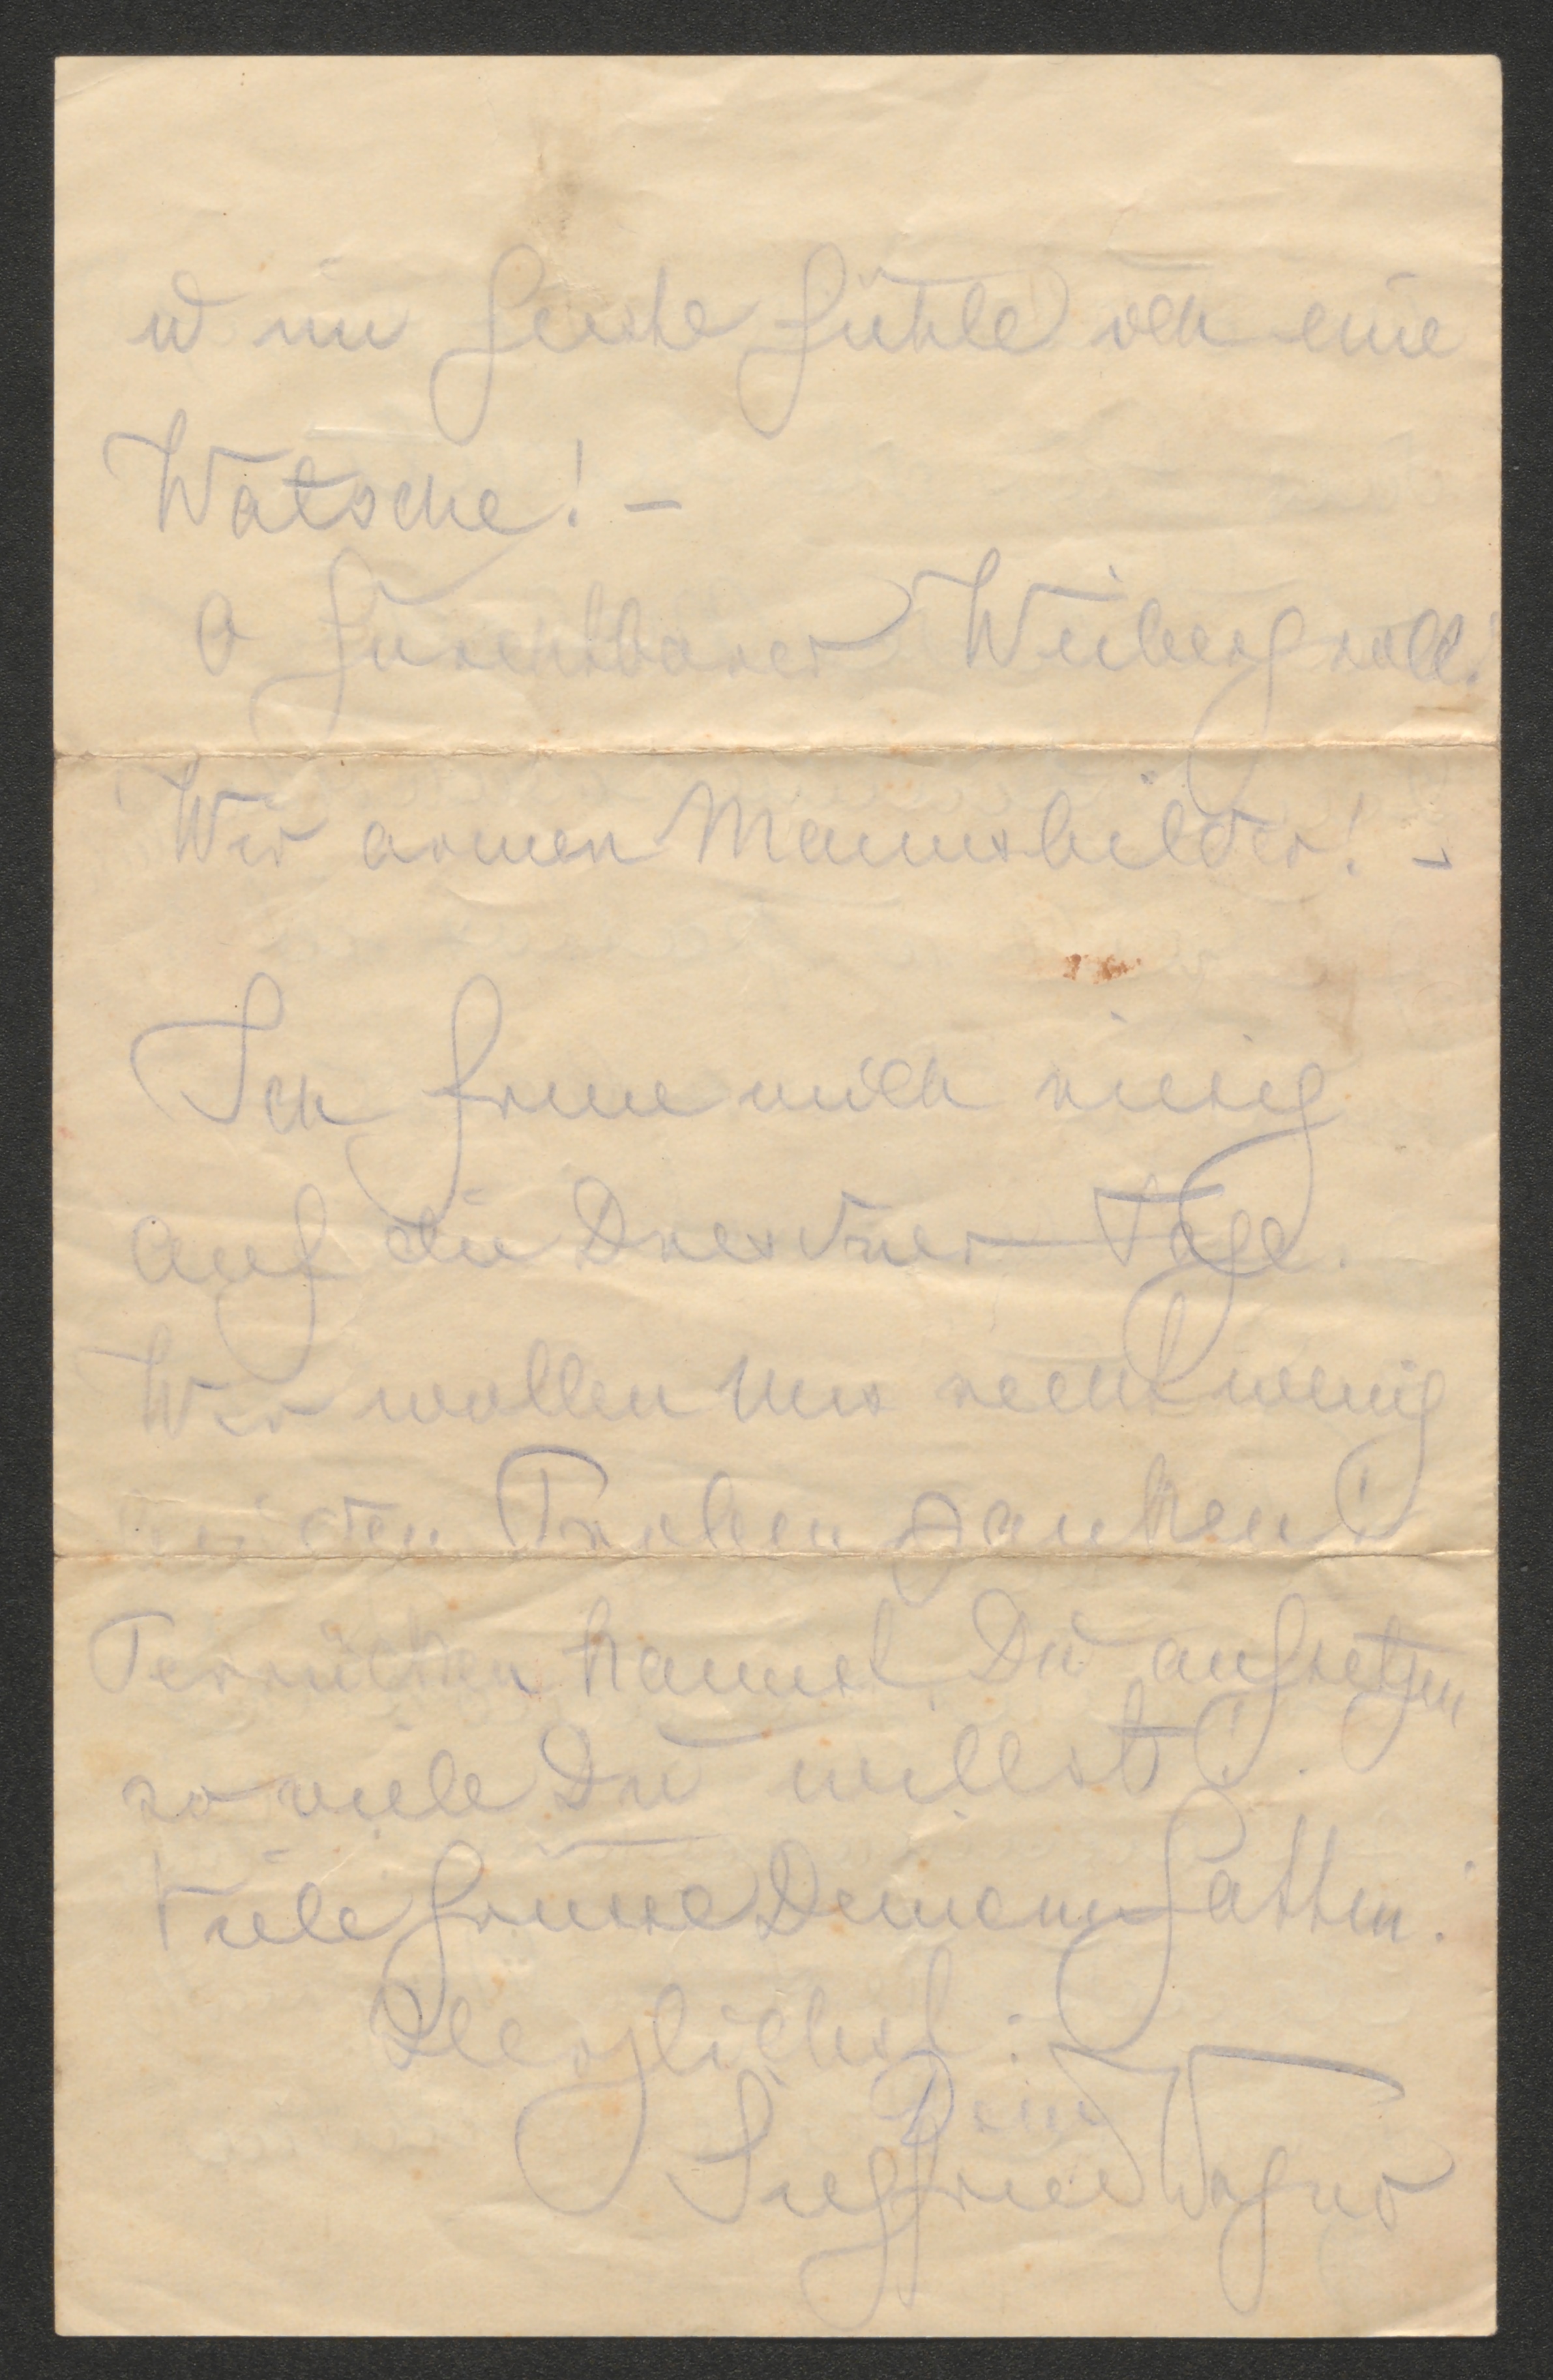 u im Geiste fühle ich eine
Watsche! –
O furchtbarer Weibergroll!
Wir armen Mannsbilder! –
Ich freue mich riesig
auf die Dresdner Tage.
Wir wollen uns recht wenig
in den Proben zanken!
Perrücken kannst Du aufsetzen
so viele Du willst!
Viele Grüsse Deinem Gatten.
Herzlichst:
Dein
Siegfried Wagner